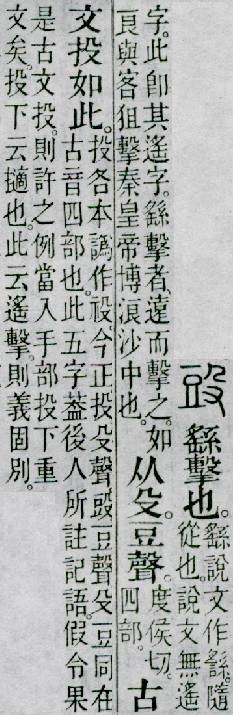 㲃
繇擊也。
繇說文作繇。隨
從也。說文無遙
字。此卽其遙字。繇擊者、遠而擊之。如
良與客狙擊秦皇帝博浪沙中也。
从殳。豆聲。
度侯切。
四部。
古
文投如此。
投各本譌作祋今正投殳聲㲃豆聲殳豆同在
古音四部也。此五字葢後人所註記語。假令果
是古文投。則許之例當入手部投下重
文矣。投下云擿也。此云遙擊。則義固別。